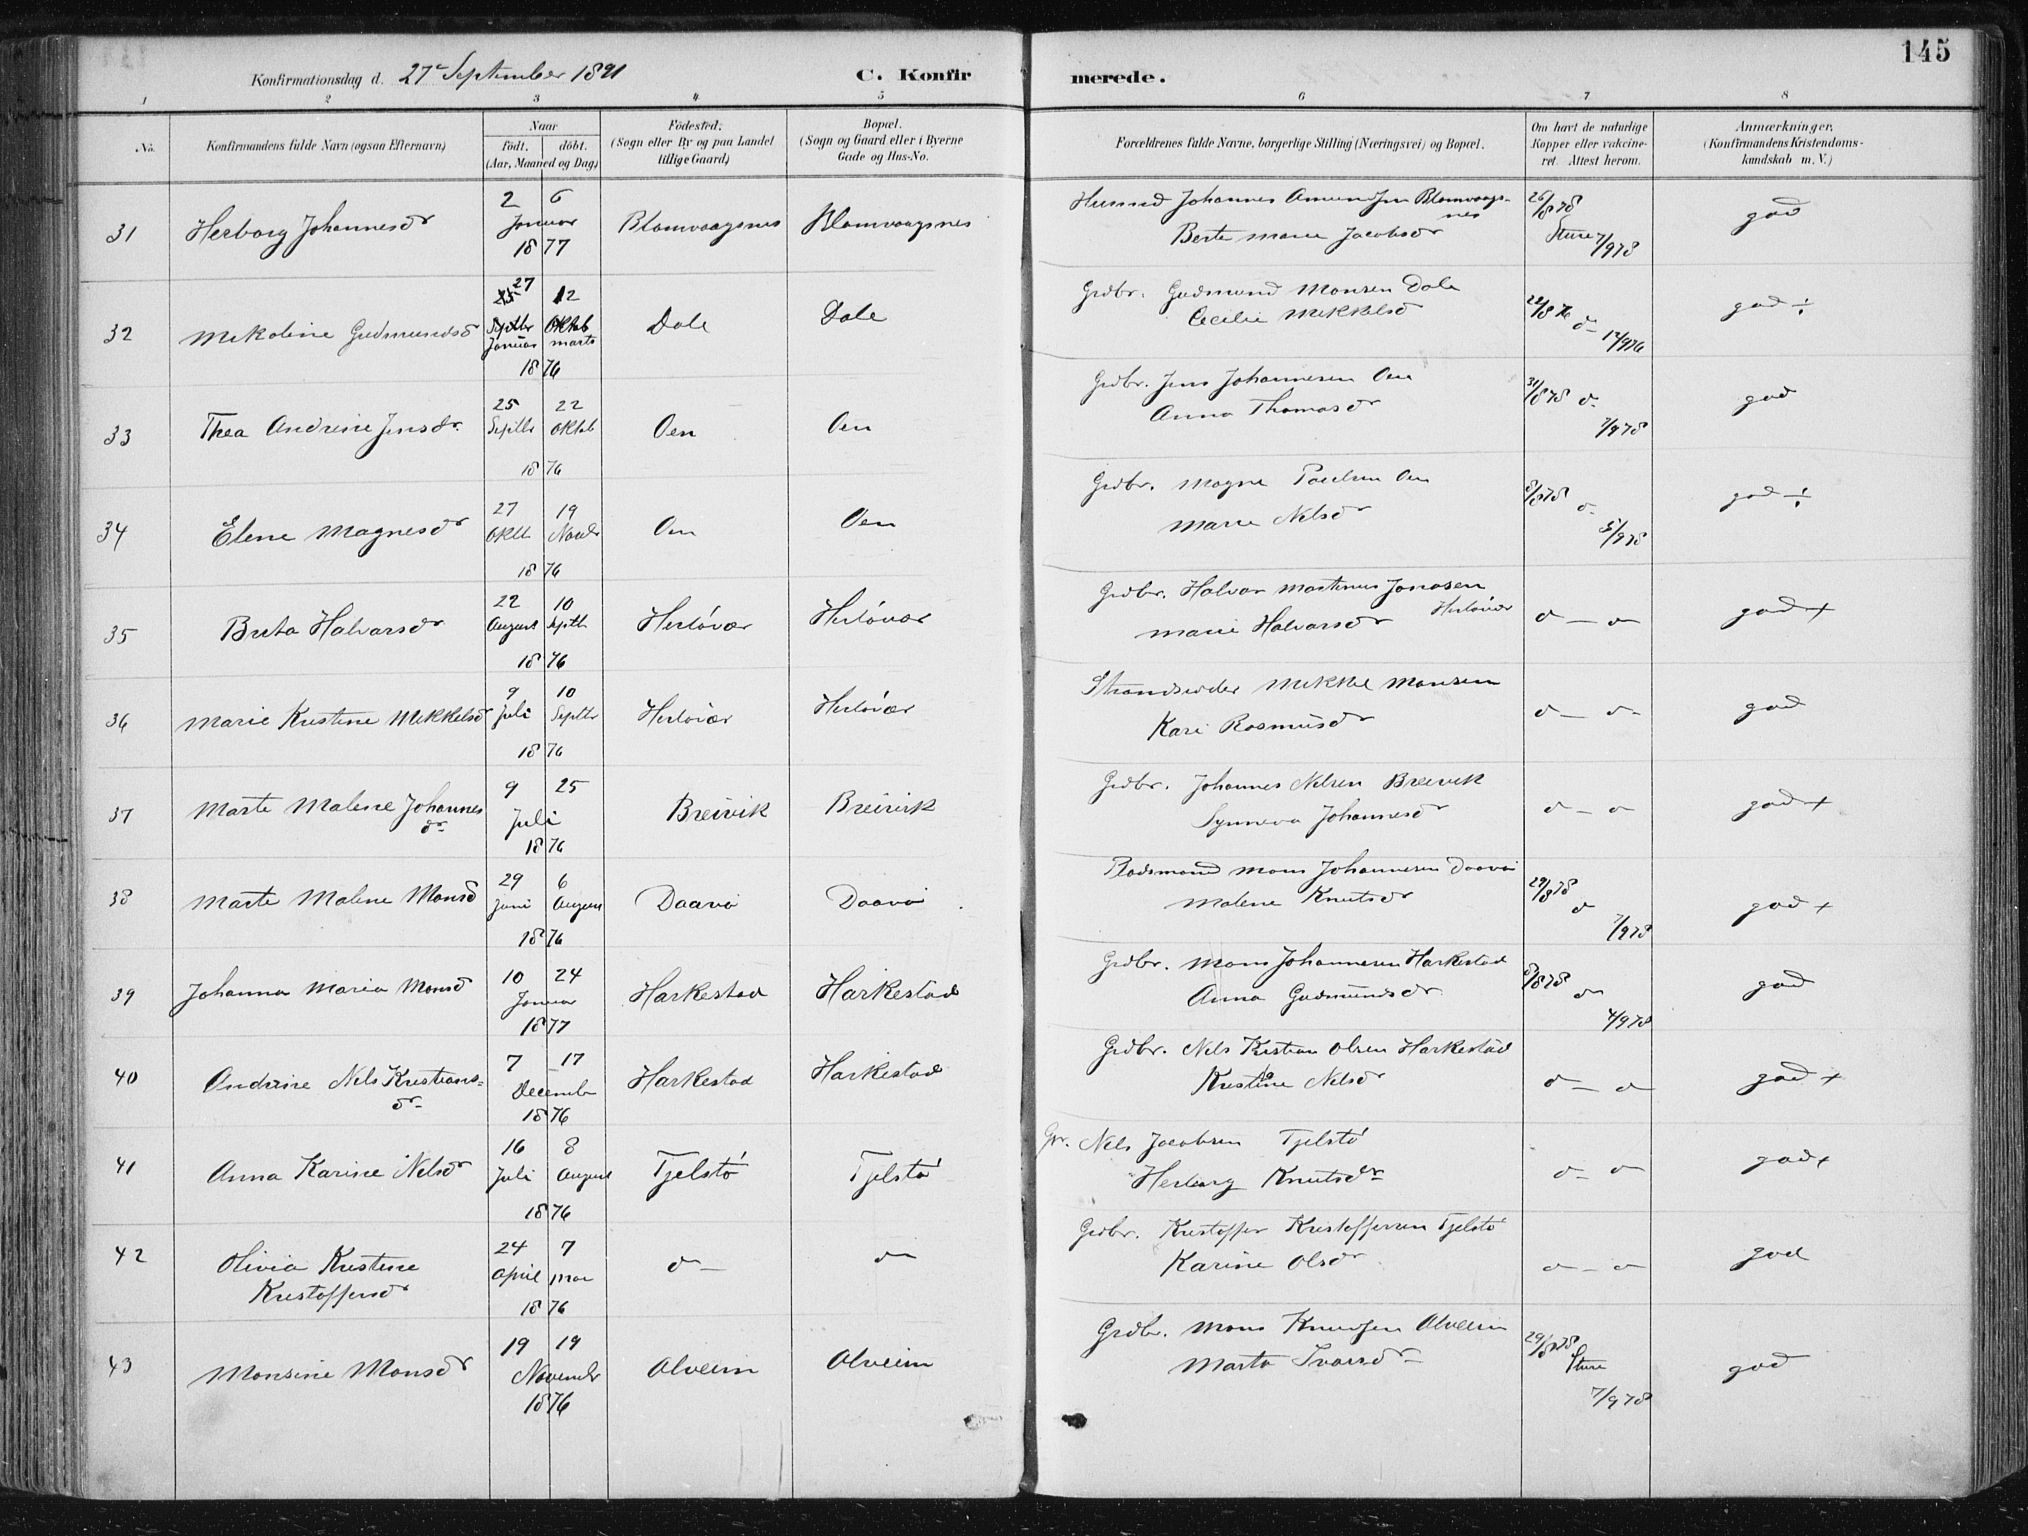 145
Konfirmationsdag d. 27de September 1891 C. Konfirmerede.
1 2 3 4 5 6 7 8
No. Konfirmandens fulde Navn (ogsaa Efternavn) Naar født. døbt. (Aar, Maaned og Dag) Fødested. (Sogn eller By og paa Landet tillige Gaard) Bopæl. (Sogn og Gaard eller i Byerne Gade og Hus-No. Forældrenes fulde Navne, borgerlige Stilling (Næringsvei) og Bopæl. Om havt de naturlige Kopper eller vaccineret. Attest herom. Anmærkninger. (Konfirmandens Kristendomskundskab m. V.)
31 Herborg Johannesdr 2 6 Januar 1877 Blomvaagsnes Blomvaagsnes Husmd Johannes Amundsen Blomvaagsnes Berte Marie Jacobsdr 26/878 Sture 7/978 god
32 Mekoline Gudmundsd 27 12 Septbr Oktob Januar marts 1876 Dale Dale Grdbr. Gudmund Monsen Dale Cecilie Mikkelsd 22/876 d- 12/976 god ÷
33 Thea Andrine Jensdr. 25 22 Septbr Oktob 1876 Oen Oen Grdbr. Jens Johannesen Oen Anna Thomasdr 31/878 d- 7/978 god
34 Elene Magnesdr 27 19 Oktb Novbr 1876 Oen Oen Grdbr. Magne Paulsen Oen Marie Nelsdr 8/878 d- 5/978 god ÷
35 Brita Halvarsdr 22 10 August Septb 1876 Herløvær Herløvær Grdbr. Halvor Martinus Jonasen Herløvær Marie Halvarsdr d — d god +
36 Marie Kristine Mikkelsdr 9 10 Juli Septbr 1876 Herløvær Herløvær Strandsidder Mikkel Monsen Kari Rasmusdr d — d- god
37 Marte Malene Johannesdr 9 25 Juli 1876 Breivik Breivik Grdbr. Johannes Nelsen Breivik Synneva Johannesdr d — d god +
38 Marte Malene Monsd 29 6 Juni August 1876 Daavø Daavø Pladsmand Mons Johannesen Daavø Malene Knutsdr 29/878 d 7/978 god +
39 Johanna Maria Monsd 10 24 Januar 1877 Harkestad Harkestad Grdbr. Mons Johannesen Harkestad Anna Gudmundsdr 8/878 d 4/978 god
40 Andrine Nels Kristiansdr 7 17 December 1876 Harkestad Harkestad Grdbr. Nels Kristian Olsen Harkestad Kristine Nelsdr d — d god +
41 Anna Karine Nelsdr 16 8 Juli August 1876 Tjelstø Tjelstø Gr. Nels Jacobsen Tjelstø Herborg Knutsdr d- d god +
42 Olivia Kristine Kristoffersdr 24 7 April Mai 1876 d — d Grdbr. Kristoffer Kristoffersen Tjelstø Karine Olsdr d — d god
43 Monsine Monsdr 19 19 November 1876 Alveim Alveim Grdbr. Mons Knudsen Alveim Marta Ivarsdr 29/878 Sture 7/978 god